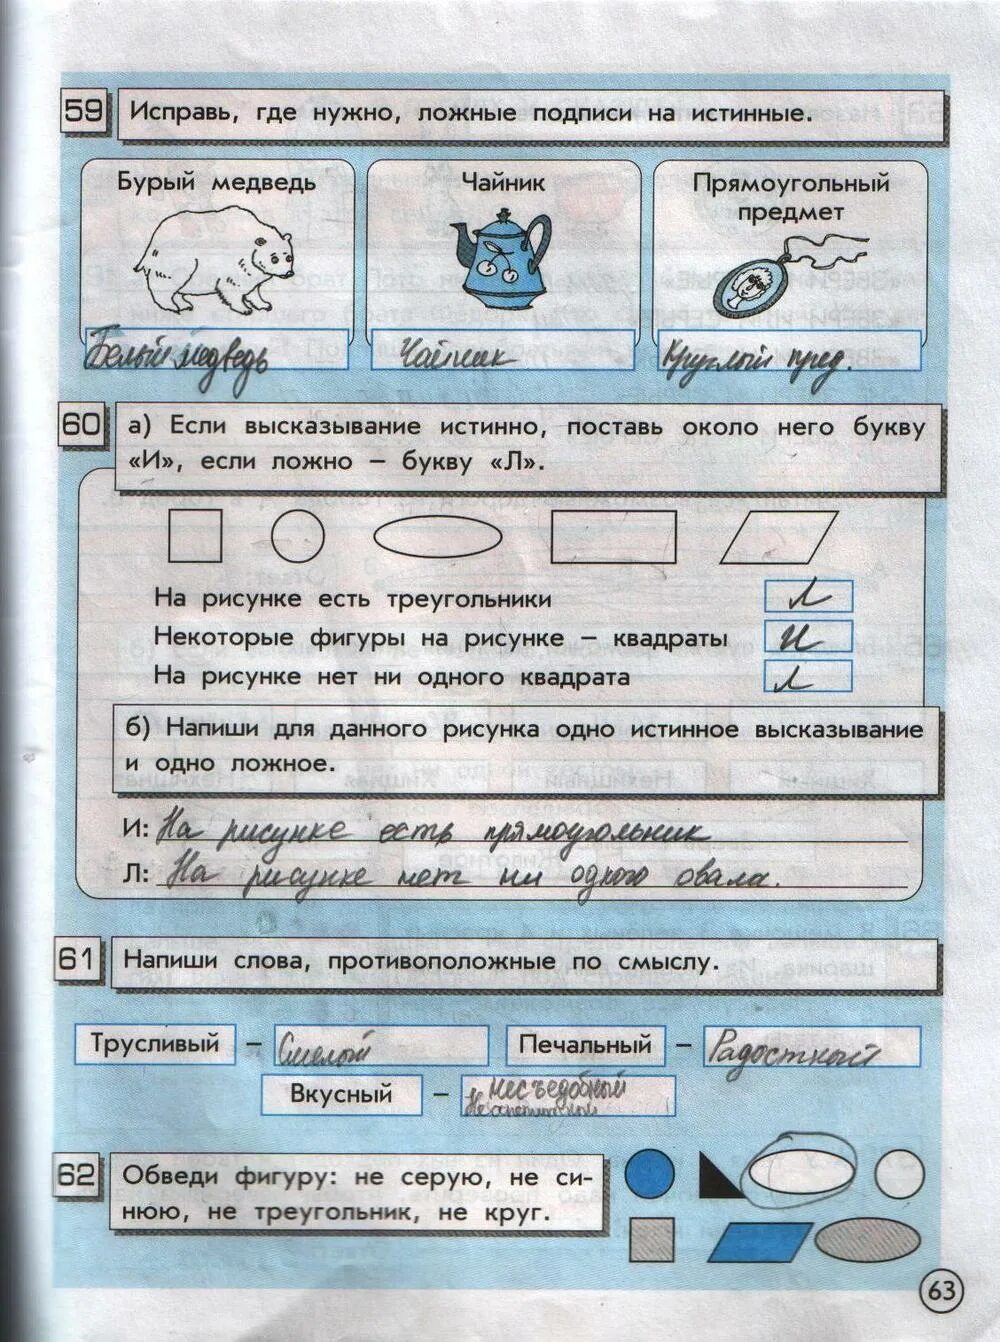 59 Исправь, где нужно, ложные подписи на истинные.
Бурый медведь
Чайник
Прямоугольный
предмет
Белый медведь
Чайник
Круглый пред.
60 а) Если высказывание истинно, поставь около него букву
«И», если ложно – букву «Л».
На рисунке есть треугольники Л
Некоторые фигуры на рисунке – квадраты И
На рисунке нет ни одного квадрата Л
б) Напиши для данного рисунка одно истинное высказывание
и одно ложное.
И: На рисунке есть прямоугольник
Л: На рисунке нет ни одного овала.
61 Напиши слова, противоположные по смыслу.
Трусливый – Смелый Печальный – Радостный
Вкусный – несъедобный
62 Обведи фигуру: не серую, не си-
нюю, не треугольник, не круг.
63